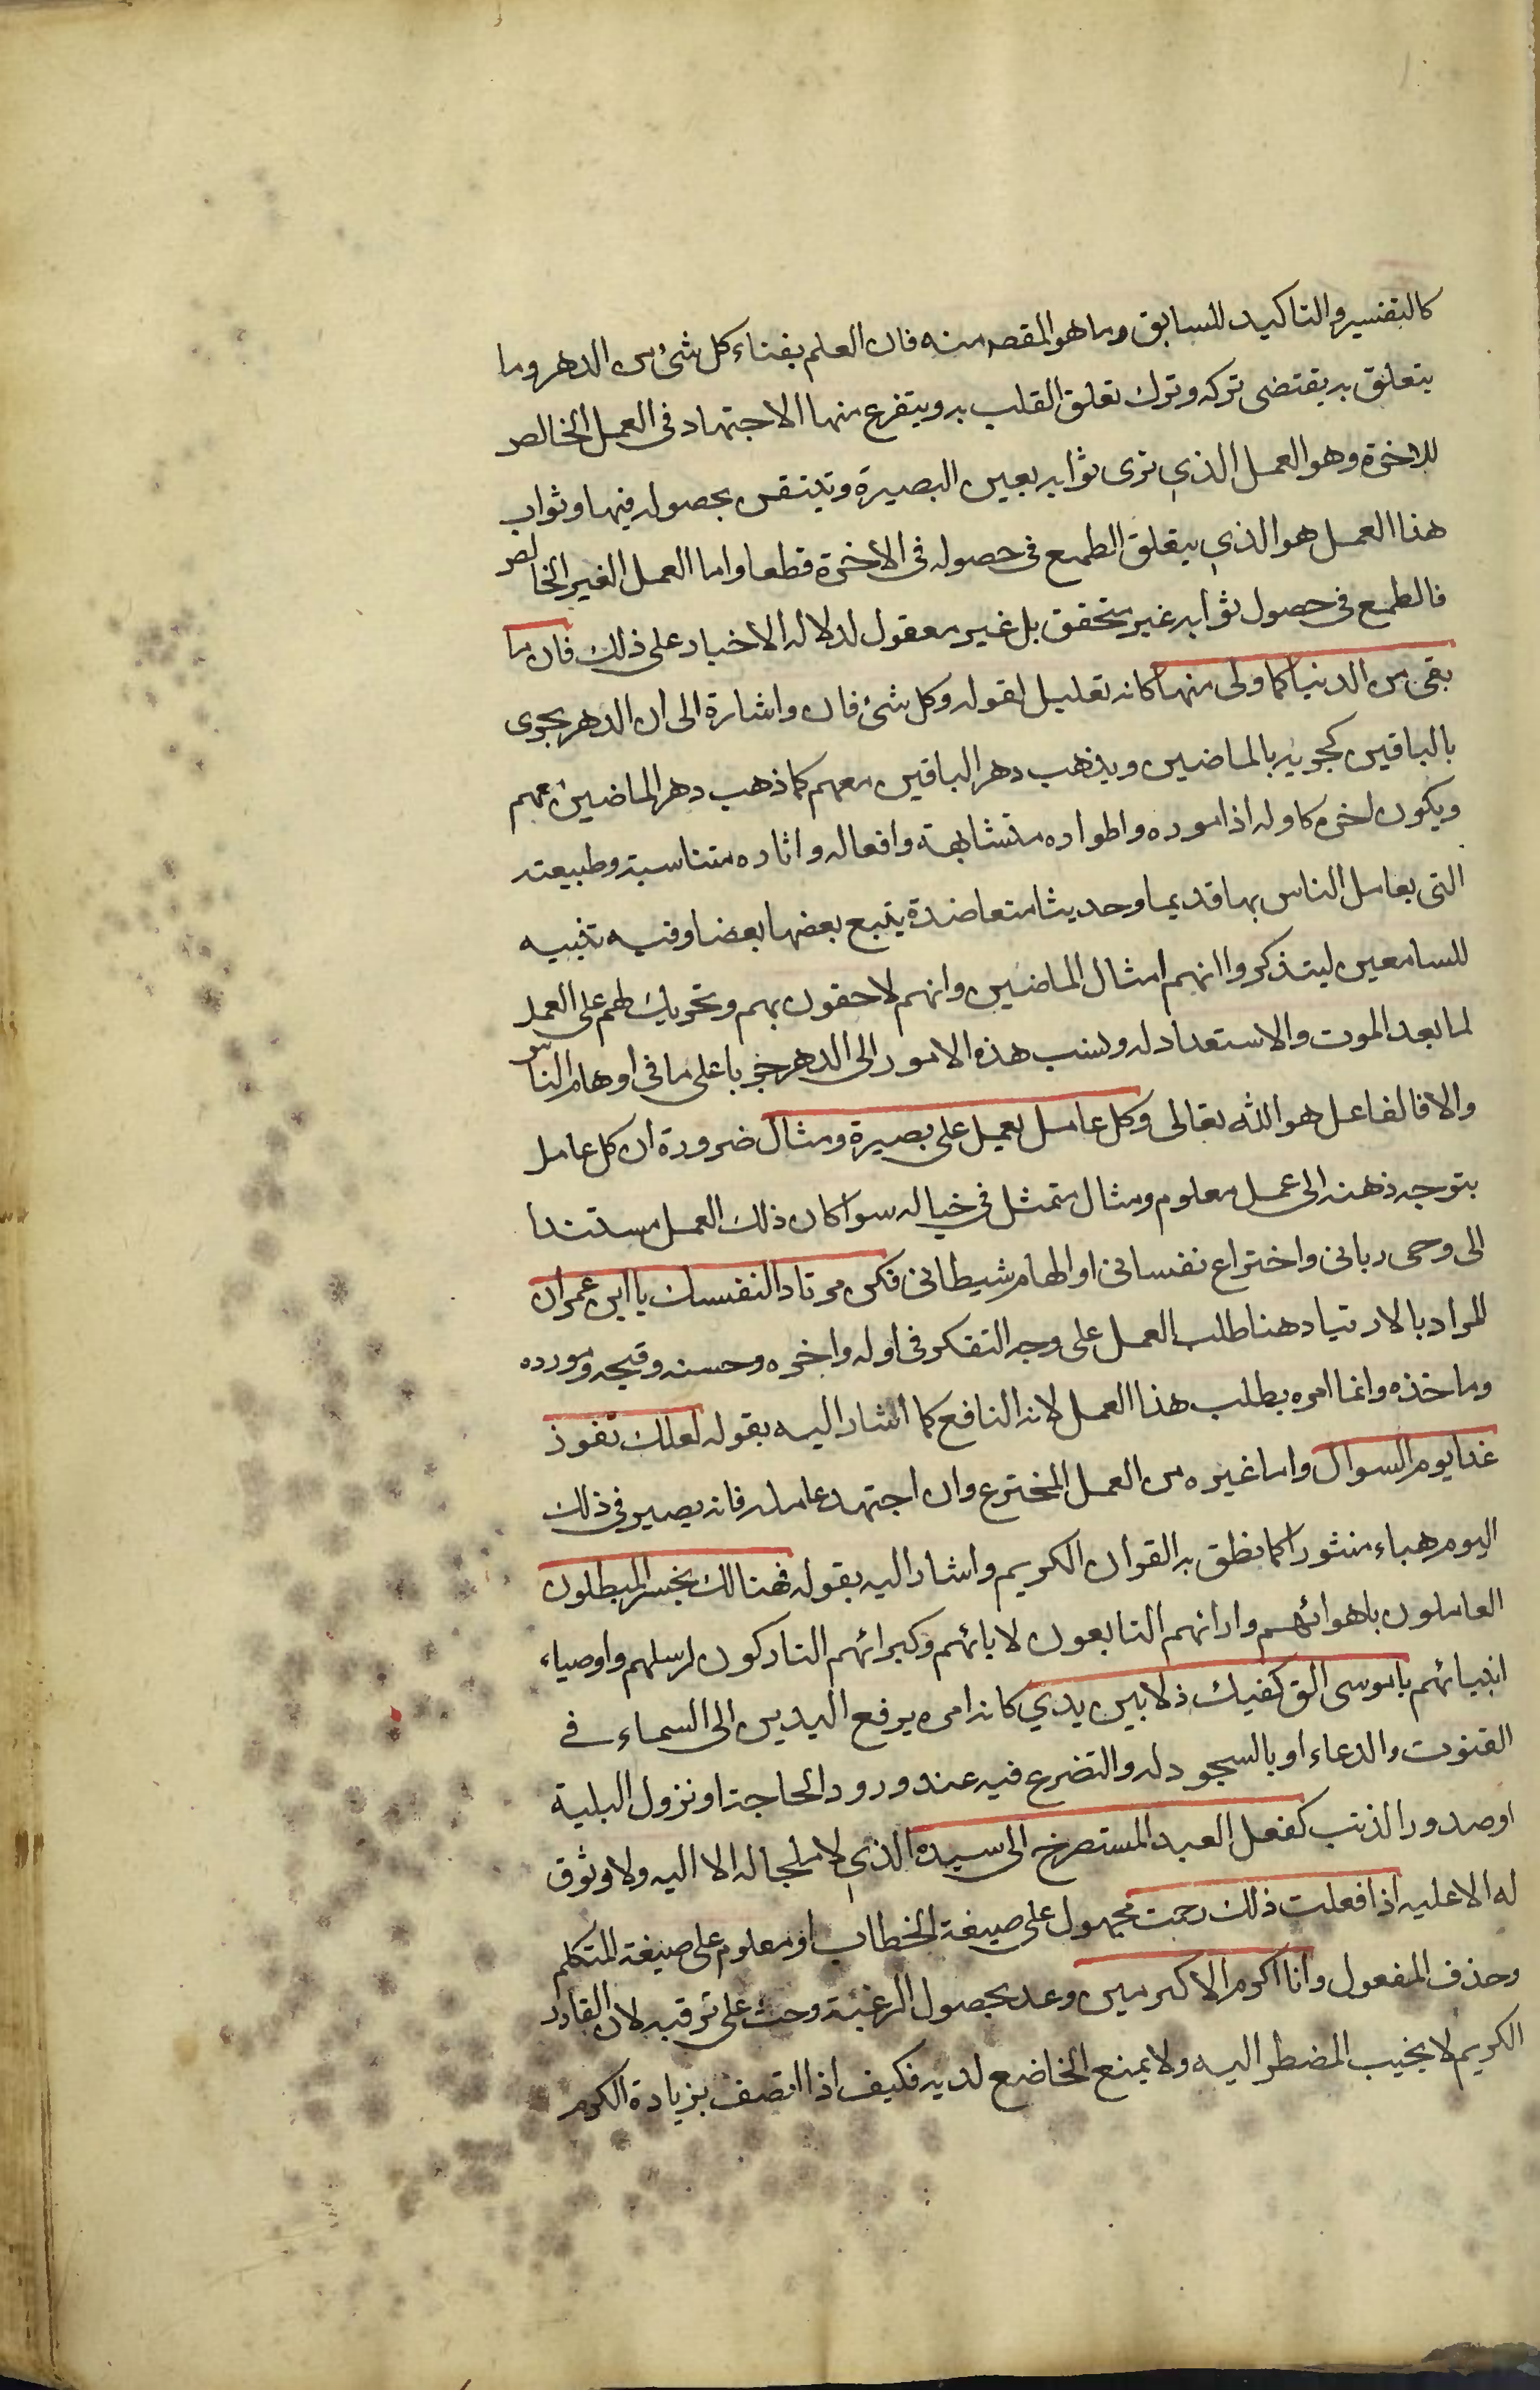 كالتفسير والتاكيد للسابق وما هو المقصد منه فان العلم بفناء كل شئ من الدهر وما
يتعلق به يقتضى تركه وترك تعلق القلب به ويتفرع منها الاجتهاد فى العمل الخالص
للاخرة وهو العمل الذي ترى ثوابه بعين البصيرة وتيقن بحصوله فيها وثواب
هذا العمل هو الذي يتعلق الطمع فى حصوله فى الاخرة قطعا واما العمل الغير الخالص
فالطمع فى حصول ثوابه غير متحقق بل غير معقول لدلاله الاخبار على ذلك فان ما
بقى من الدنيا كما ولى منها كانه تعليل لقوله وكل شئ فان واشارة الى ان الدهر يجرى
بالباقين كجريه بالماضين ويذهب دهر الباقين معهم كما ذهب دهر الماضين معهم
ويكون اخره كاوله اذ اموره واطواره متشابهة وافعاله واثاره متناسبة وطبيعته
التى يعامل الناس بها قديما وحديثا متعاضدة يتبع بعضها بعضا وفيه تنبيه
للسامعين ليتذكروا انهم امثال الماضين وانهم لاحقون بهم وتحريك لهم على العمل
لما بعد الموت والاستعداد له ونسب هذه الامور الى الدهر جريا على ما فى اوهام الناس
والا فالفاعل هو الله تعالى وكل عامل يعمل على بصيرة ومثال ضرورة ان كل عامل
يتوجه ذهنه الى عمل معلوم ومثال متمثل فى خياله سوا كان ذلك العمل مستندا
الى وحى ربانى واختراع نفسانى او الهام شيطانى فكن مرتادا لنفسك يا ابن عمران
المراد بالارتياد هنا طلب العمل على وجه التفكر فى اوله واخره وحسنه وقبحه ومورده
وماخذه وانما امره بطلب هذا العمل لانه النافع كما اشار اليه بقوله لعلك تفوز
غدا يوم السوال واما غيره من العمل المخترع وان اجتهد عامله فانه يصير فى ذلك
اليوم هباء منثورا كما نطق به القران الكريم واشار اليه بقوله فهنالك يخسر المبطلون
العاملون باهوائهم وارائهم التابعون لابائهم وكبرائهم التاركون لرسلهم واوصياء
انبيائهم يا موسى الق كفيك ذلا بين يدي كانه امره برفع اليدين الى السماء فے
القنوت والدعاء او بالسجود له والتضرع فيه عند ورود الحاجة او نزول البلية
او صدور الذنب كفعل العبد المستصرخ الى سيده الذي لا ملجا له الا اليه ولا وثوق
له الا عليه اذا فعلت ذلك رحمت مجهول على صيغة الخطاب او معلوم على صيغة المتكلم
وحذف المفعول وانا اكرم الاكرمين وعد بحصول الرغبة وحث على ترقبه لان القادر
الكريم لا يخيب المضطر اليه ولا يمنع الخاضع لديه فكيف اذا اتصف بزيادة الكرم